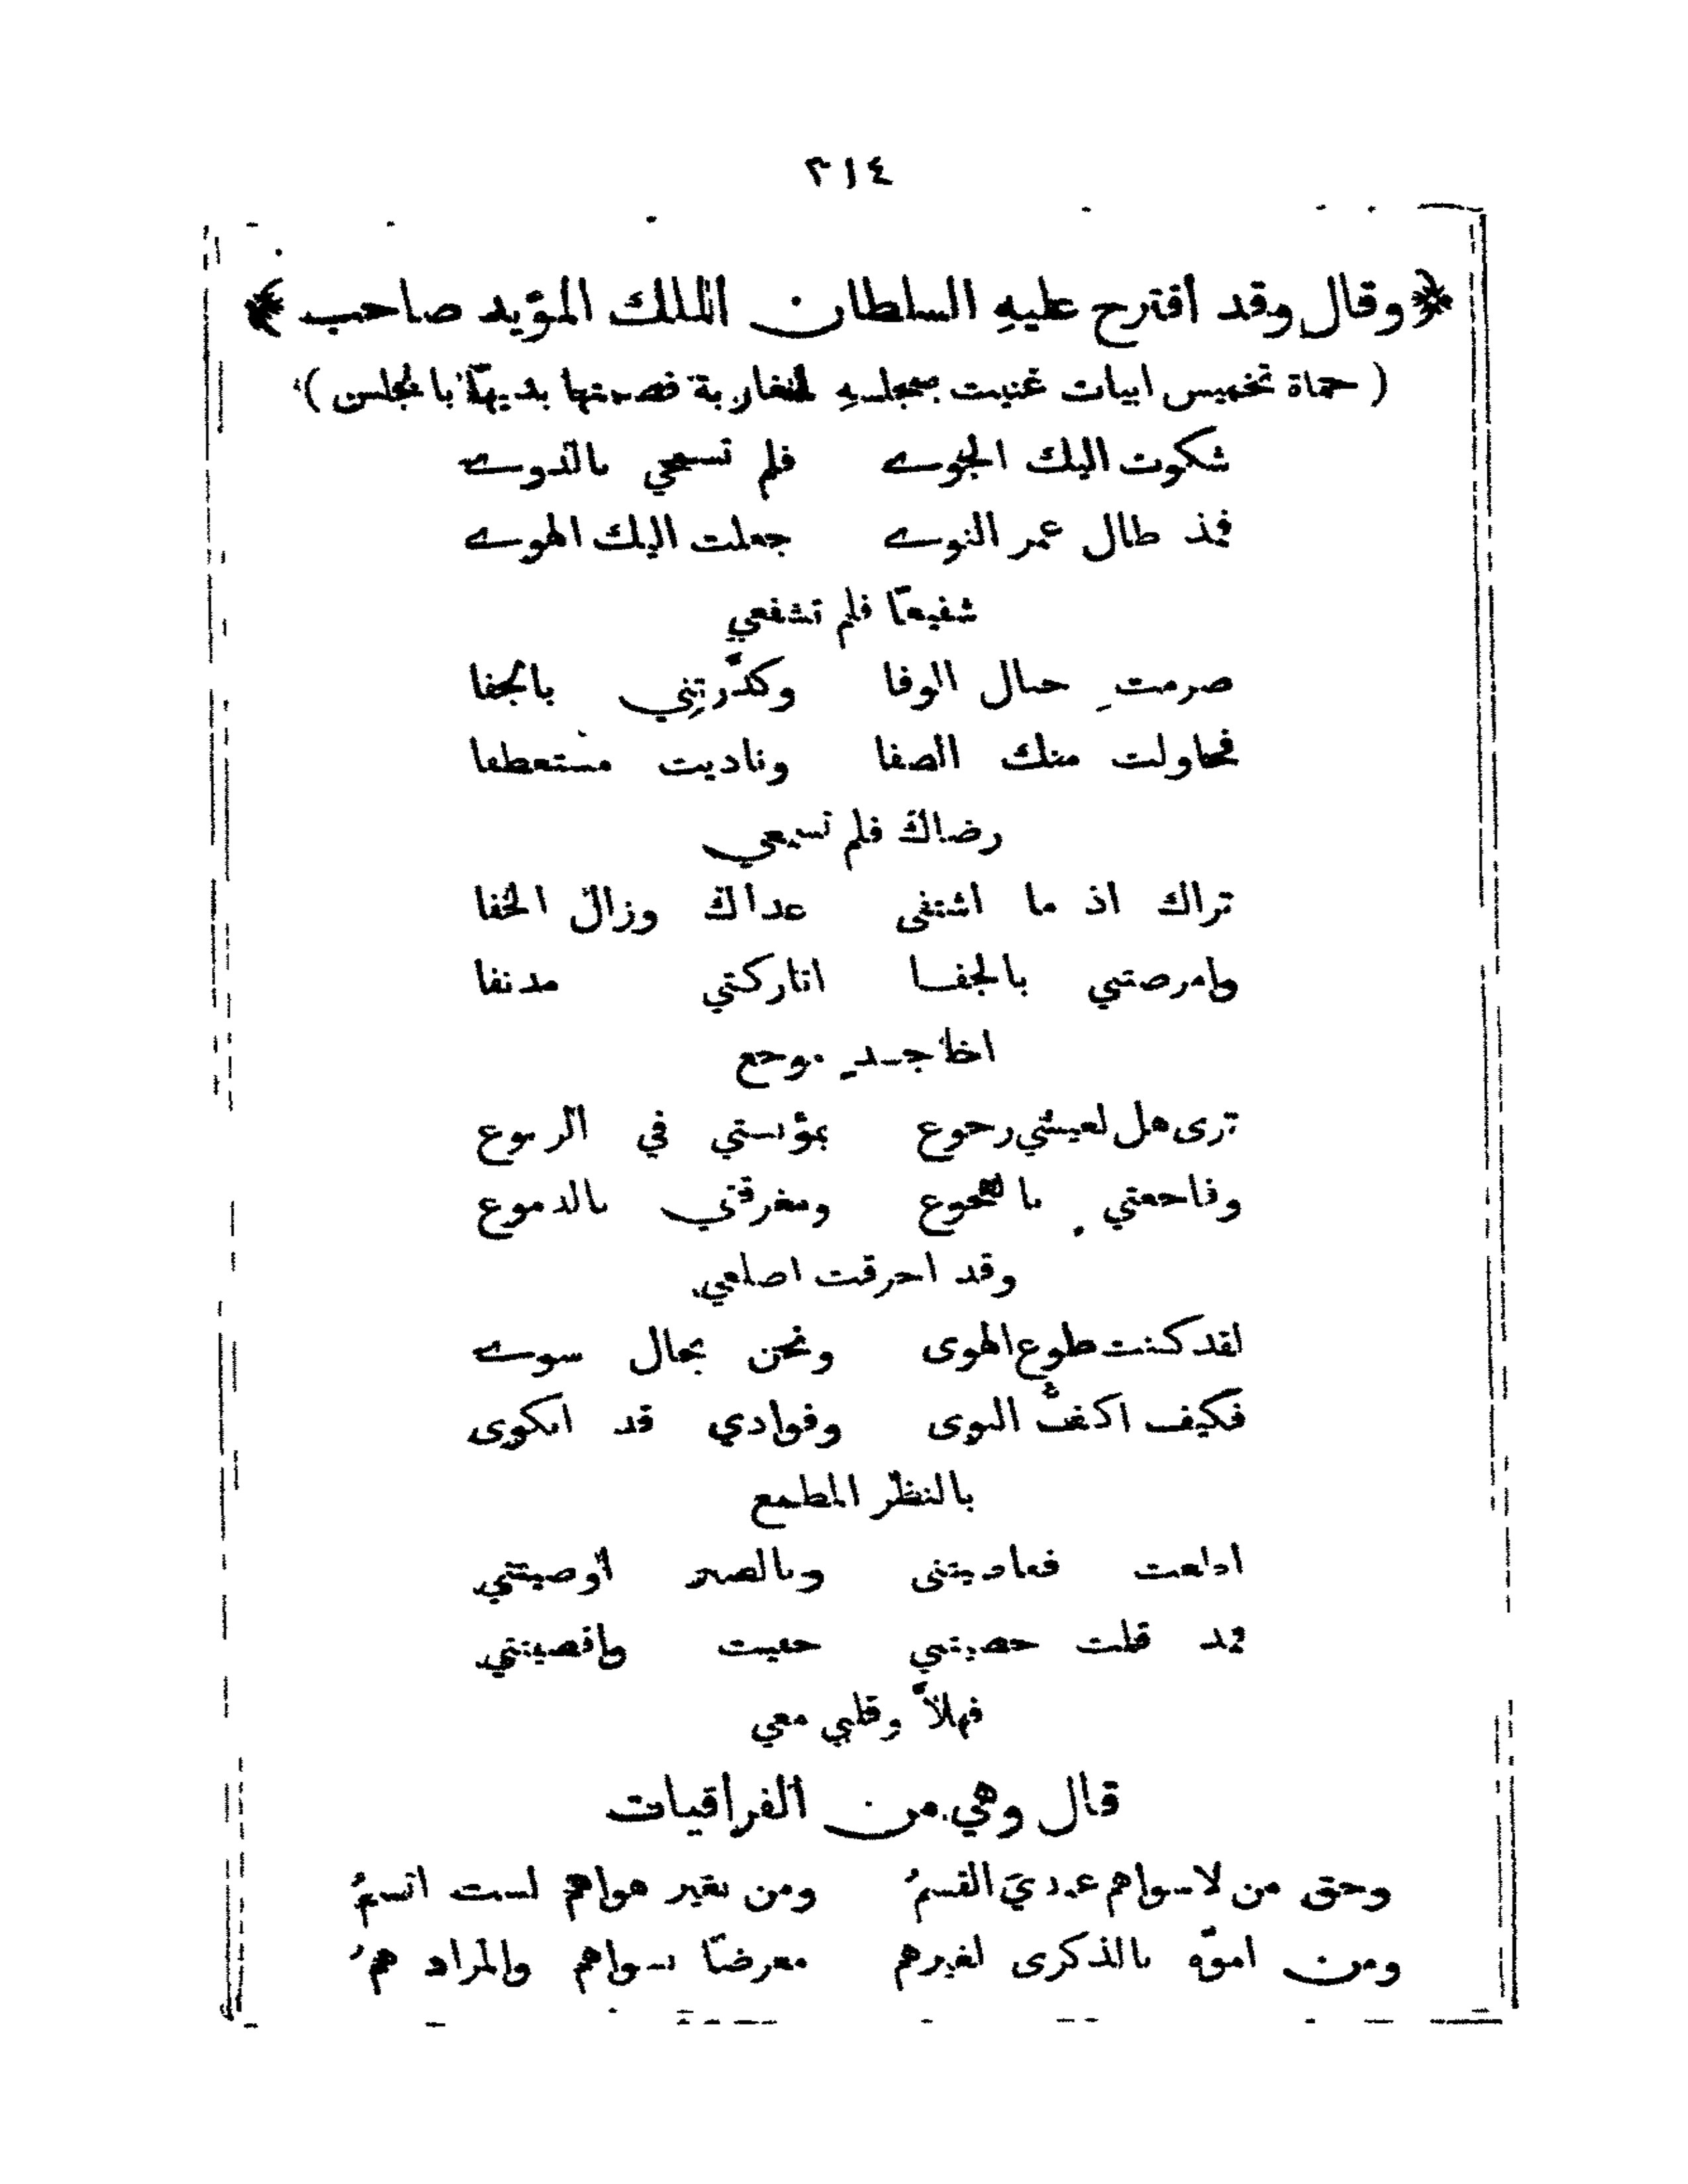 ٣١٤
﴿ وقال وقد اقترح عليهِ السلطان الملك المؤيد صاحب ﴾
( حماة تخميس ابيات غنيت بمجلسهِ للمغاربة بديهًا بالمجلس )
شكوت اليك الجوى فلم تسمحي بالدوى
فمذ طال عمر النوى جعلت اليك الهوى
شفيعًا فلم تشفعي
صرمتِ حبال الوفا وكدَّرتِني بالجفا
فحاولت منك الصفا وناديت مستعطفا
رضاك فلم تسمعي
تراك اذ ما اشتفى عداك وزال الخفا
وامرضتني بالجفا اتاركتي مدنفا
اخا جسدٍ موجع
ترى هل لعيشي رجوع بمؤنستي في الربوع
وفاجعتي بالهجوع ومغرقتي بالدموع
وقد احرقت اضلعي
لقد كنت طوع الهوى ونحن بحال سوى
فكيف اكفُّ النوى وفوادي قد انكوى
بالنظر المطمع
فعاديتني وبالصبر أوصيتني
فمذ قلت واقصيتني
فهلاَّ وقلبي معي
قال وهي من الفراقيات
وحق من لا سواهم عنديَ القسمُ ومن بغير هواهم لست اتسمُ
ومن اموّه بالذكرى لغيرهم معرضًا بسواهم والمراد همُ